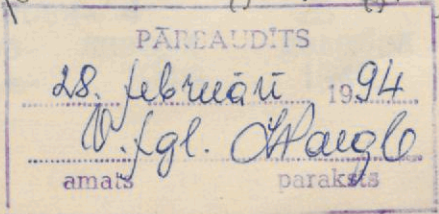 PĀRBAUDĪTS
28. februārī 1994
V. fgl.
amats paraksts